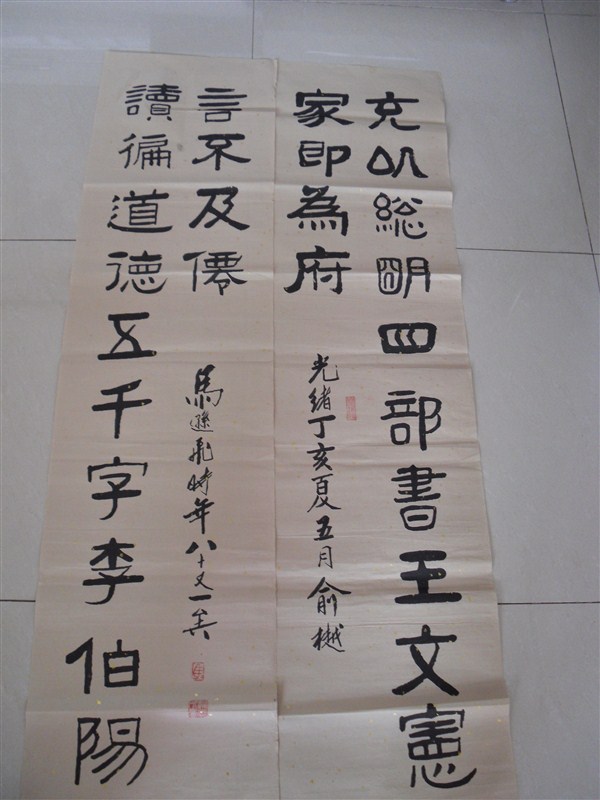 充以総朙四部書王文憲
家即為府
光緒丁亥夏五月俞樾
讀徧道德五千字李伯陽
言不及僊
馬遜飛時年八十又一矣